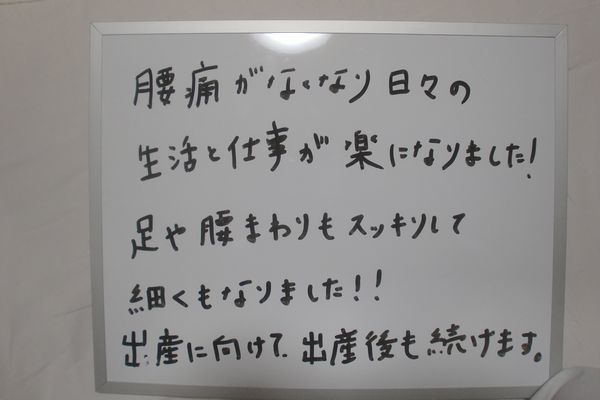 腰痛がなくなり日々の
生活と仕事が楽になりました!
足や腰まわりもスッキリして
細くもなりました!!
出産に向けて出産後も続けます。